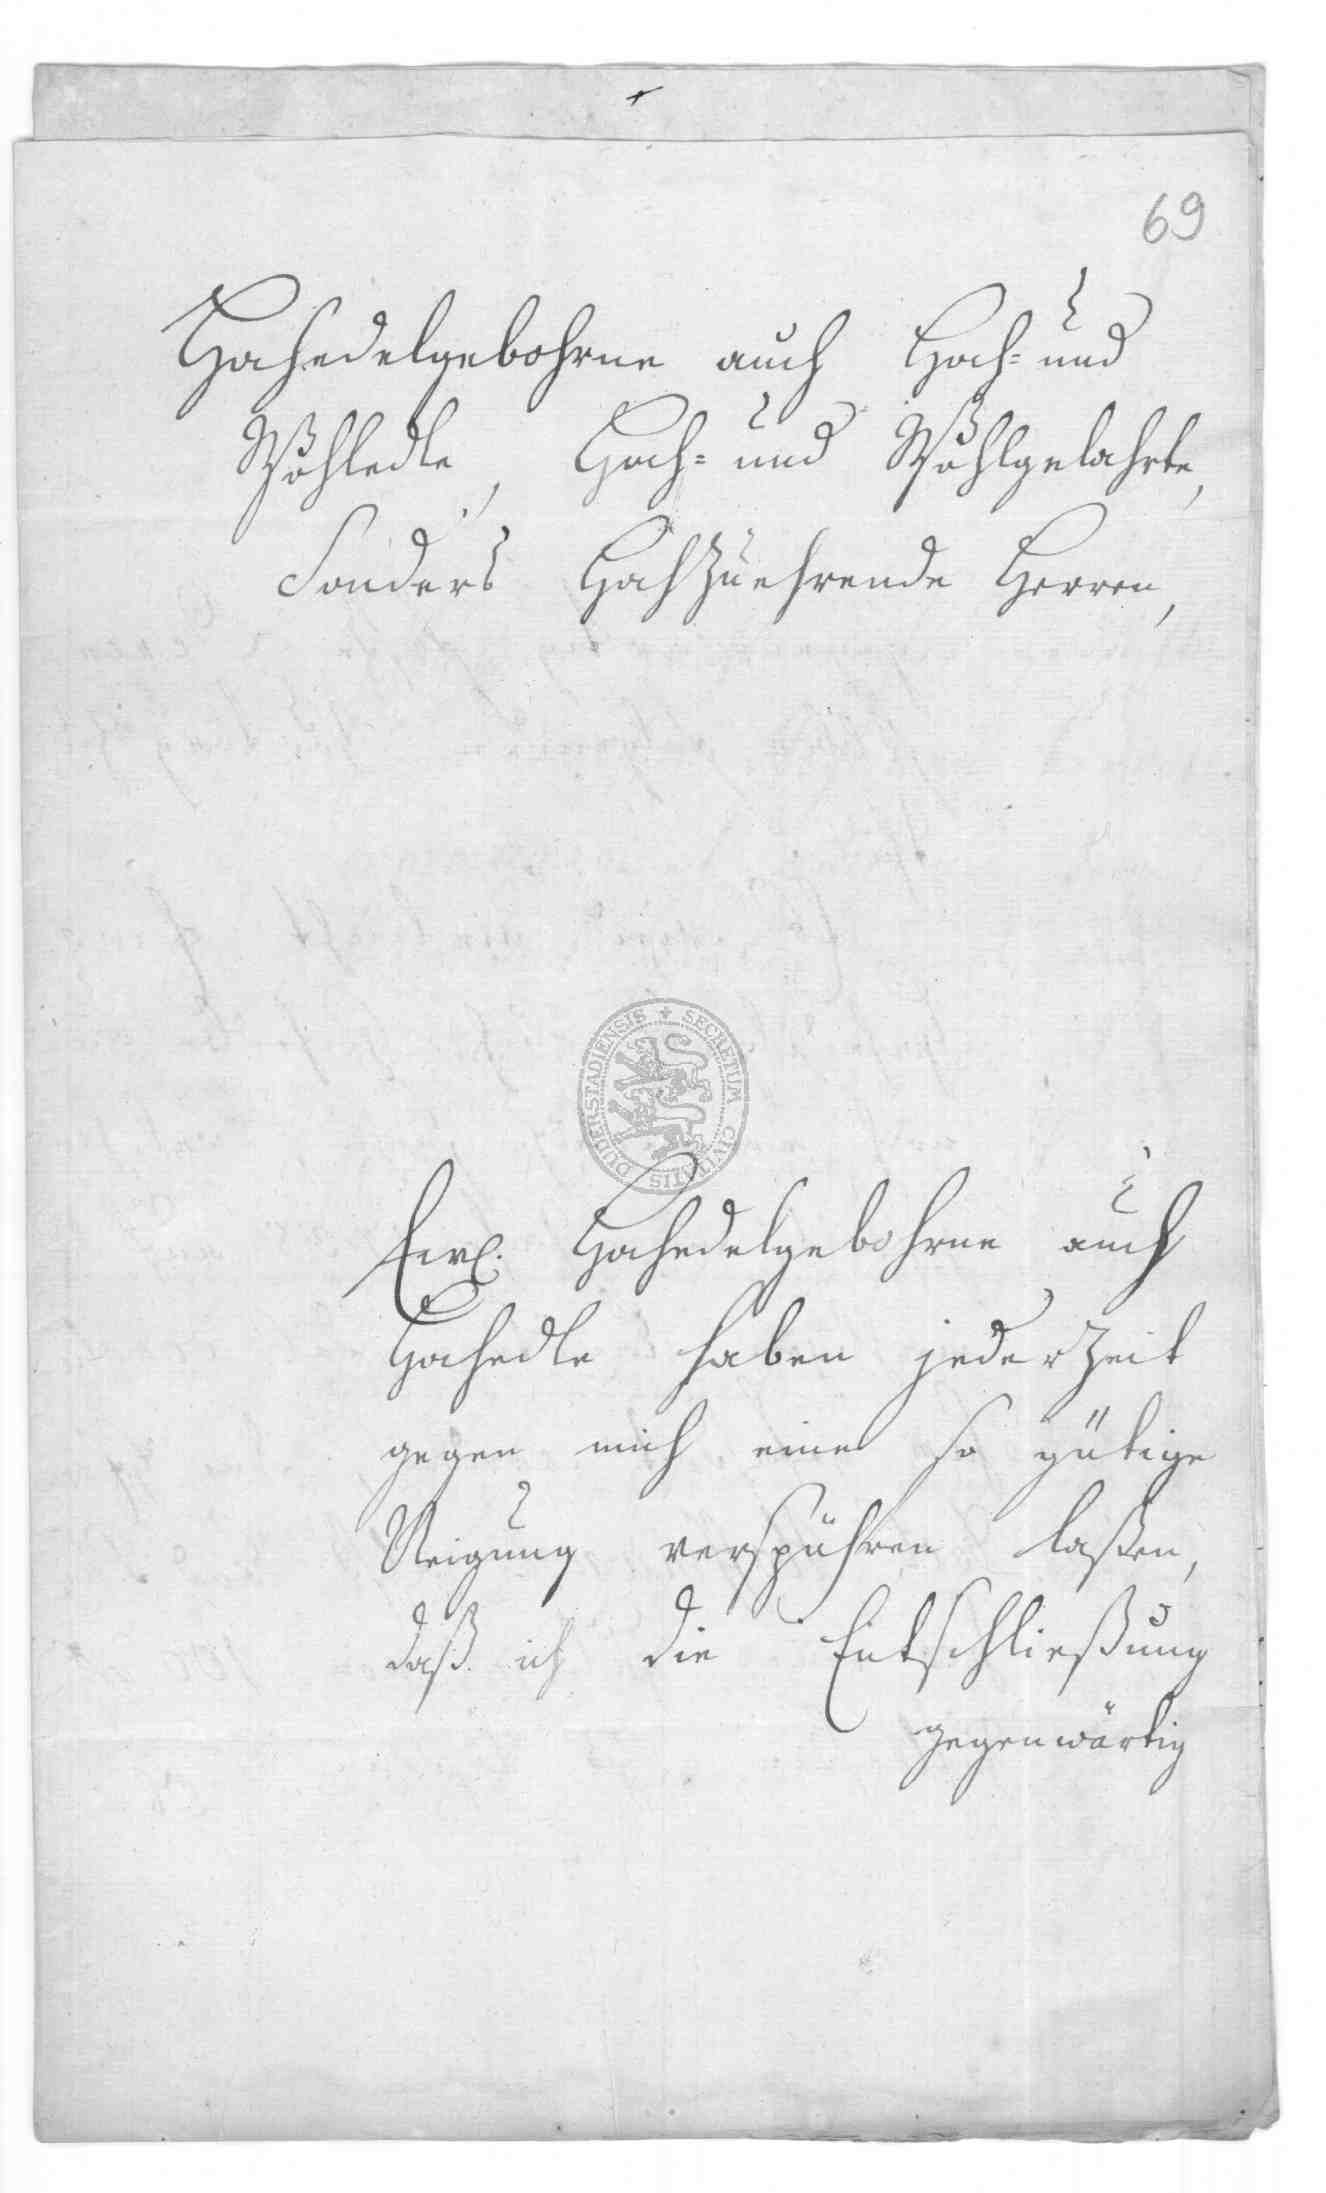 69
Hochedelgebohrne auch Hoch= und
Wohledle, Hoch= und Wohlgelahrte,
Sonders HochZuehrende Herren,
SECRETUM CIVITATIS DUDERSTADIENSIS
Ewl. Hochedelgebohrne auch
Hochedle haben jederZeit
gegen mich eine so gütige
Neigung verspühren laßen,
daß ich die Entschließung
gegenwärtig